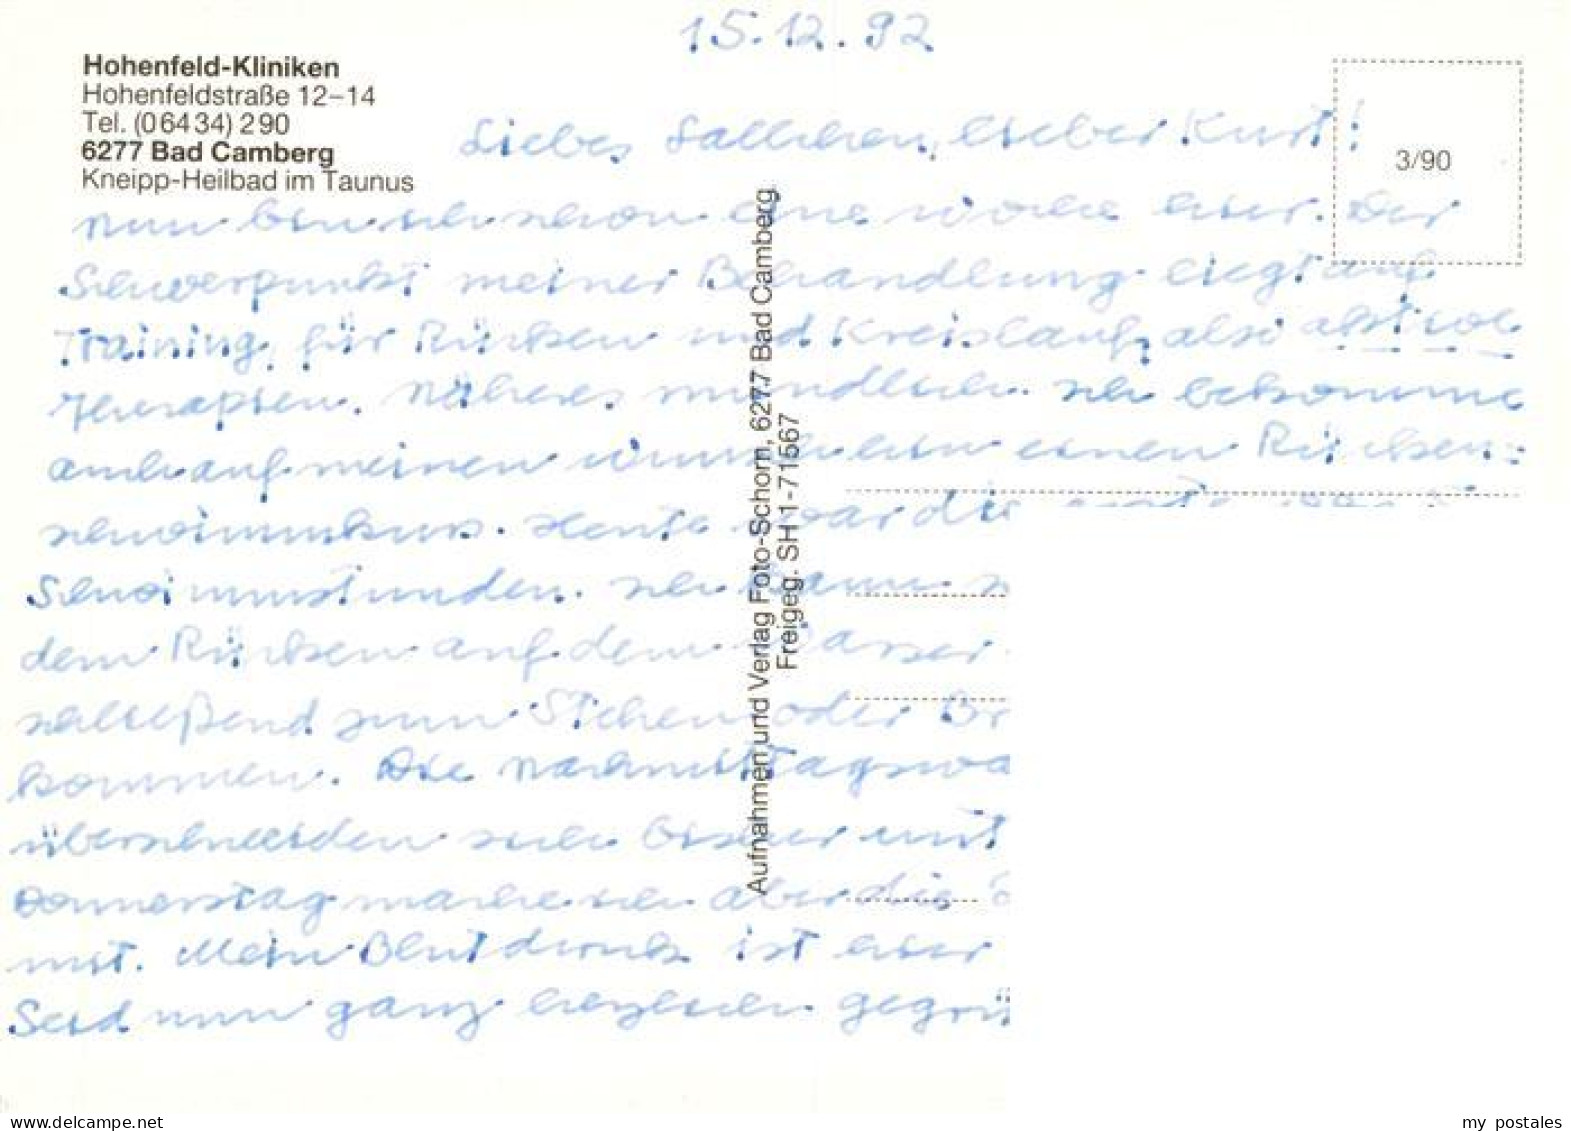 15.12.92
Hohenfeld-Kliniken
Hohenfeldstraße 12–14
Tel. (06434) 290
6277 Bad Camberg
Kneipp-Heilbad im Taunus
3/90
Liebes lieber Kurt!
Nun bin ich schon eine Woche hier. Der
Schwerpunkt meiner Behandlung liegt auf
Training für Rücken und Kreislauf, also aktive
Therapien. Näheres mündlich. Ich bekomme
auch auf meinen Wunsch hin einen Rücken-
schwimmkurs. Heute war die erste
Schwimmstunden. Ich kann
dem Rücken auf dem Wasser
schließend zum Stehen oder
kommen. Die Nachmittagswa
überschneiden sich bisher mit
Donnerstag mache ich aber die
mit. Mein Blutdruck ist hier
Seid nun ganz herzlich gegrü
Aufnahmen und Verlag Foto-Schorn, 6277 Bad Camberg
Freigeg. SH 1-71567
my_postales.com
my_postales